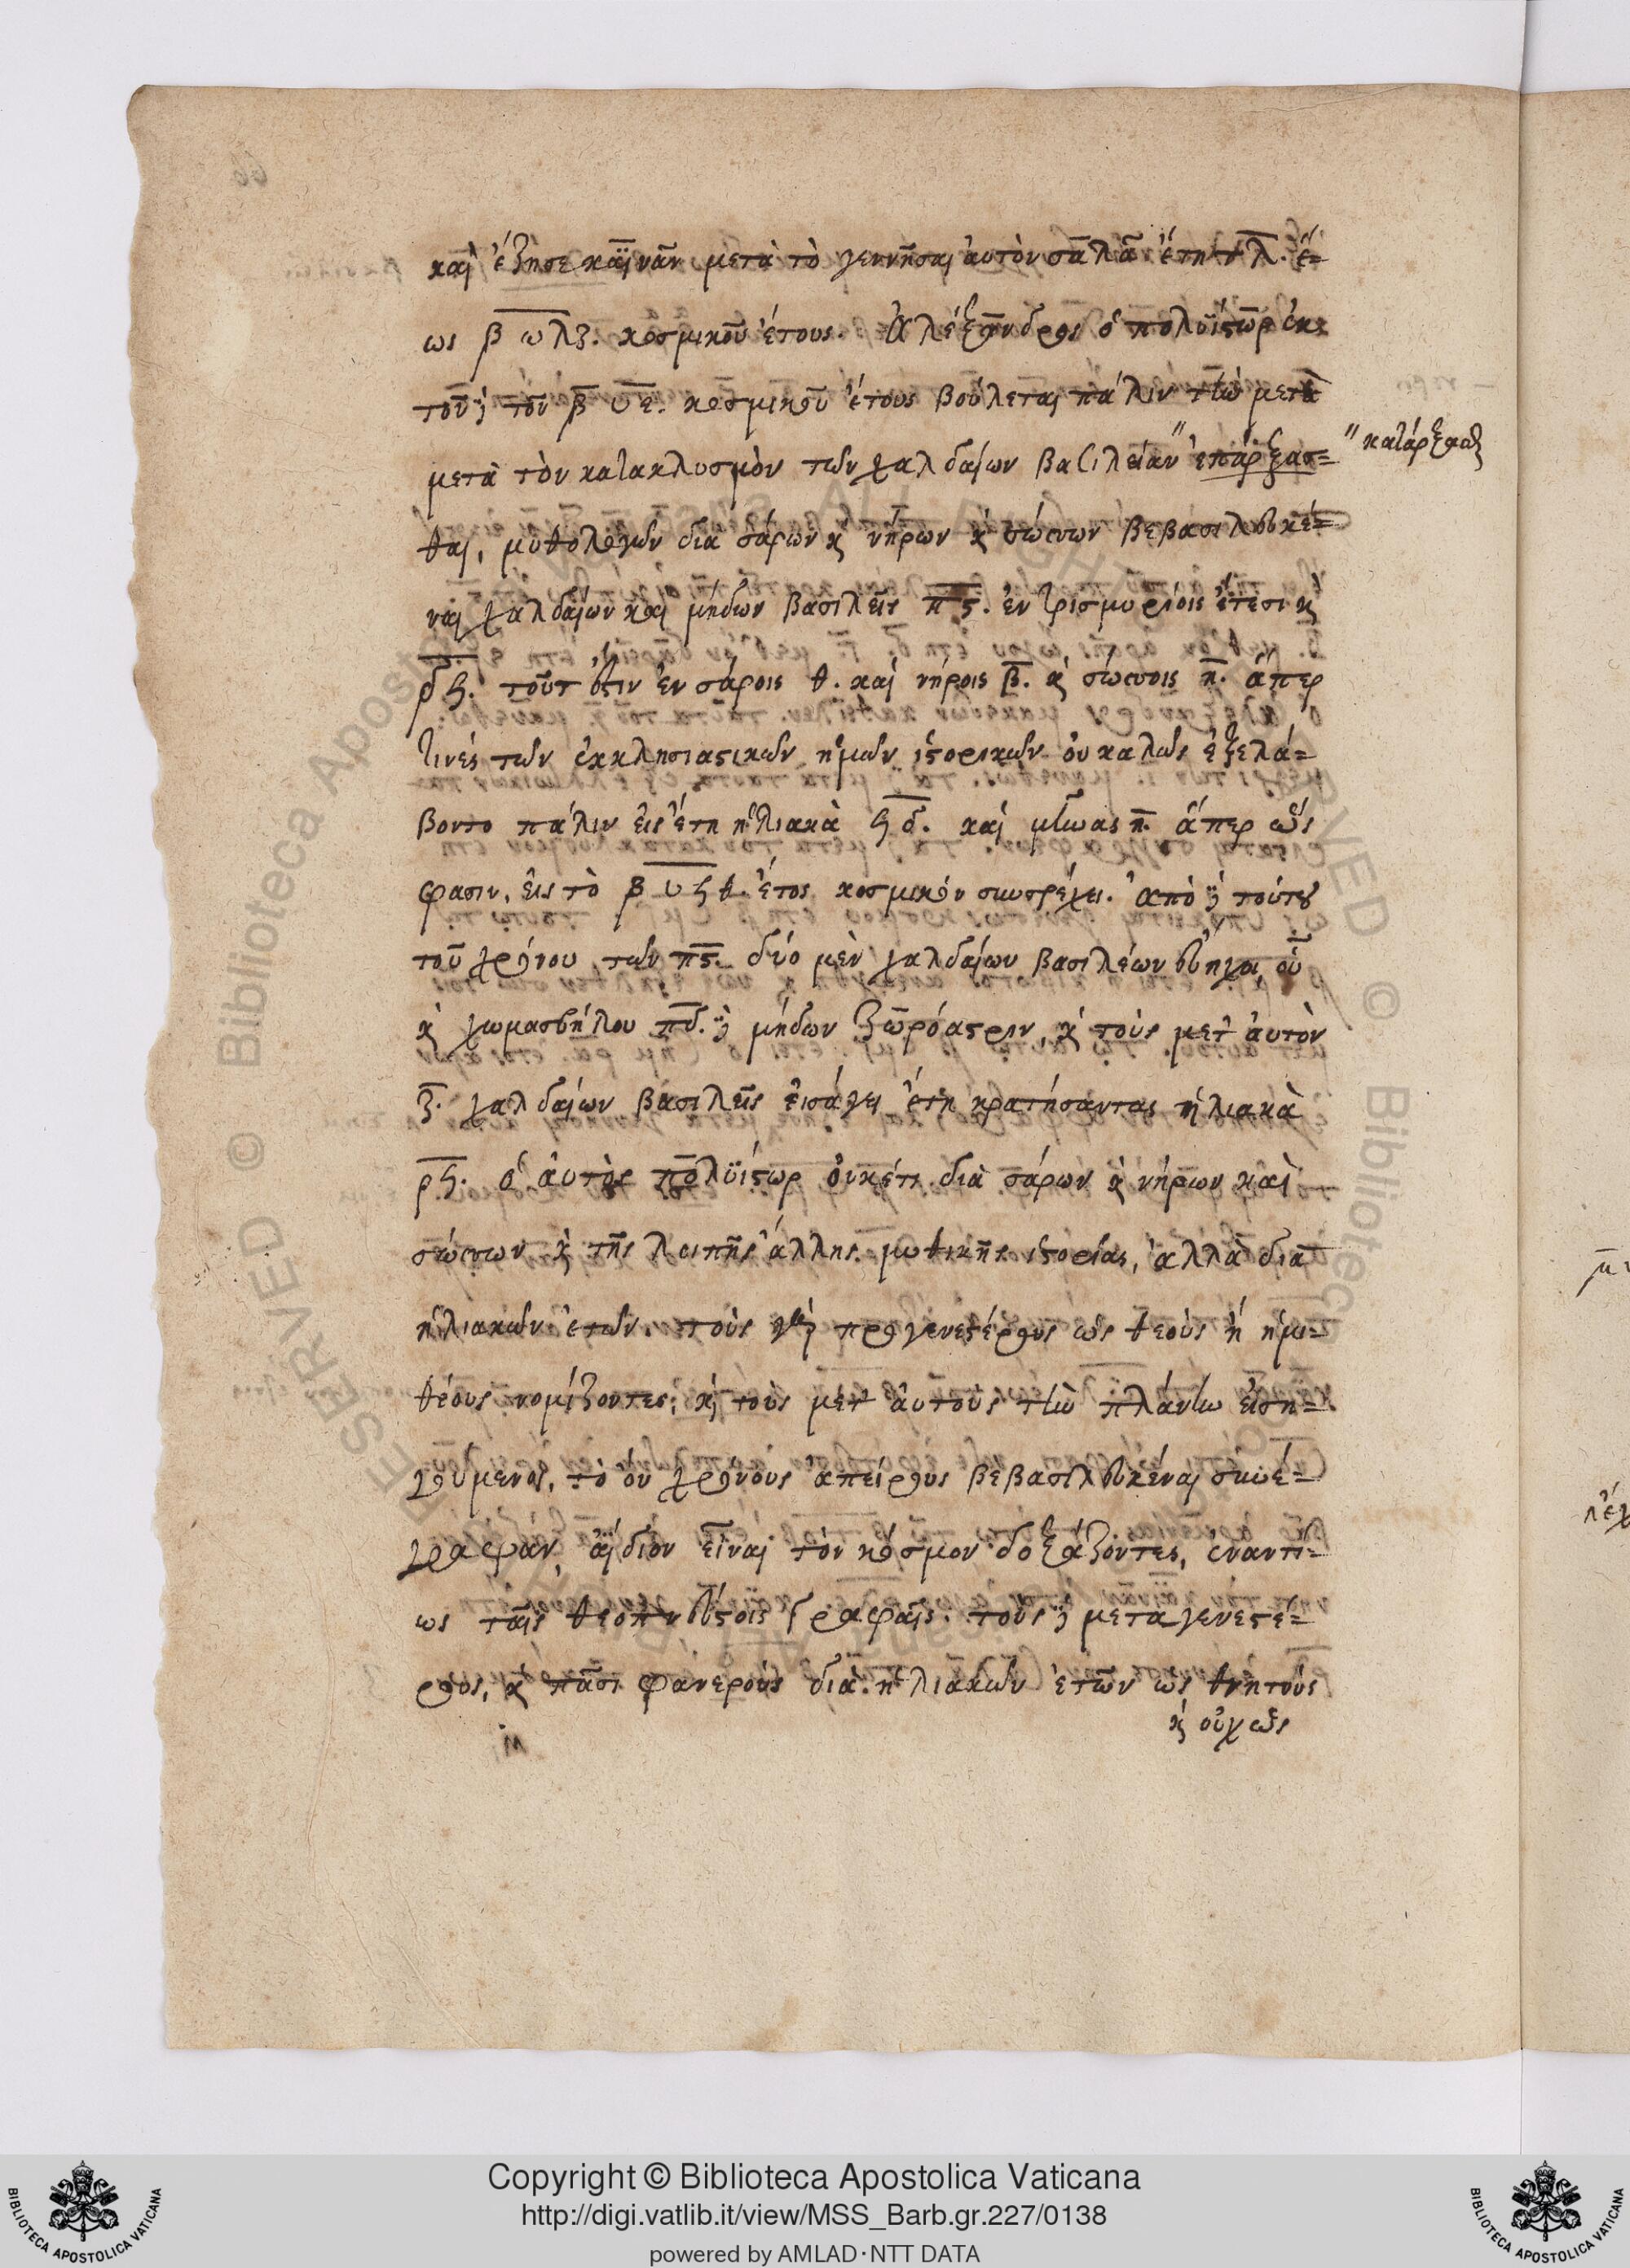 καὶ ἔζησε καϊνᾶν μετὰ τὸ γεννῆσαι αὐτὸν σαλᾶ ἔτη τλ. ἕ=
ως βωλζ. κοσμικοῦ ἔτους. Ἀλέξανδρος ὁ πολυΐστωρ ἐκ
τοῦ δὲ τοῦ β υε. κοσμικοῦ ἔτους βούλεται πάλιν τὴν μετὰ
μετὰ τὸν κατακλυσμὸν τῶν χαλδαίων βασιλείαν " ἐπάρξασ=
" κατάρξασθαι
θαι, μυθολογῶν διὰ σάρων κ νήρων κ σώσσων βεβασιλευκέ=
ναι χαλδαίων καὶ μήδων βασιλεῖς πς. ἐν τρισμυρίοις ἔτεσι κ
ϟ. τοῦτ ἔστιν ἐν σάροις θ. καὶ νήροις β. κ σώσσοις η. ἅπερ
τινὲς τῶν ἐκκλησιαστικῶν ἡμῶν ἱστορικῶν οὐ καλῶς ἐξελά=
βοντο πάλιν εἰς ἔτη ἡλιακὰ ϟδ. καὶ μῆνας η. ἅπερ ὥς
φασιν, εἰς τὸ β υϟθ. ἔτος κοσμικὸν συντρέχει. ἀπὸ δὲ τούτου
τοῦ χρόνου τῶν πς. δύο μὲν χαλδαίων βασιλέων εὐηχίου
κ χωμασβήλου πδ. δὲ μήδων ζωρόαστριν, κ τοὺς μετ αὐτὸν
ζ. χαλδαίων βασιλεῖς εἰσάγει ἔτη κρατήσαντας ἡλιακὰ
ρϟ. ὁ αὐτὸς πολυΐστωρ οὐκέτι διὰ σάρων κ νήρων καὶ
σώσσων κ τῆς λοιπῆς ἄλλης μυθικῆς ἱστορίας, ἀλλὰ διὰ
ἡλιακῶν ἐτῶν. τοὺς γὰρ προγενεστέρους ὡς θεοὺς ἢ ἡμι=
θέους νομίζοντες, κ τοὺς μετ αὐτοὺς τὴν πλάνην εἰση=
γούμενοι, χρόνους ἀπείρους βεβασιλευκέναι συνέ=
γραψαν, ἀΐδιον εἶναι τὸν κόσμον δοξάζοντες, ἐναντί=
ως ταῖς θεοπνεύστοις γραφαῖς. τοὺς δὲ μεταγενεστέ=
ρους, κ πᾶσι φανεροὺς διὰ ἡλιακῶν ἐτῶν ὡς θνητοὺς
κ οὐχ ὡς
Copyright © Biblioteca Apostolica Vaticana
http://digi.vatlib.it/view/MSS_Barb.gr.227/0138
powered by AMLAD·NTT DATA
BIBLIOTECA APOSTOLICA VATICANA
BIBLIOTECA APOSTOLICA VATICANA